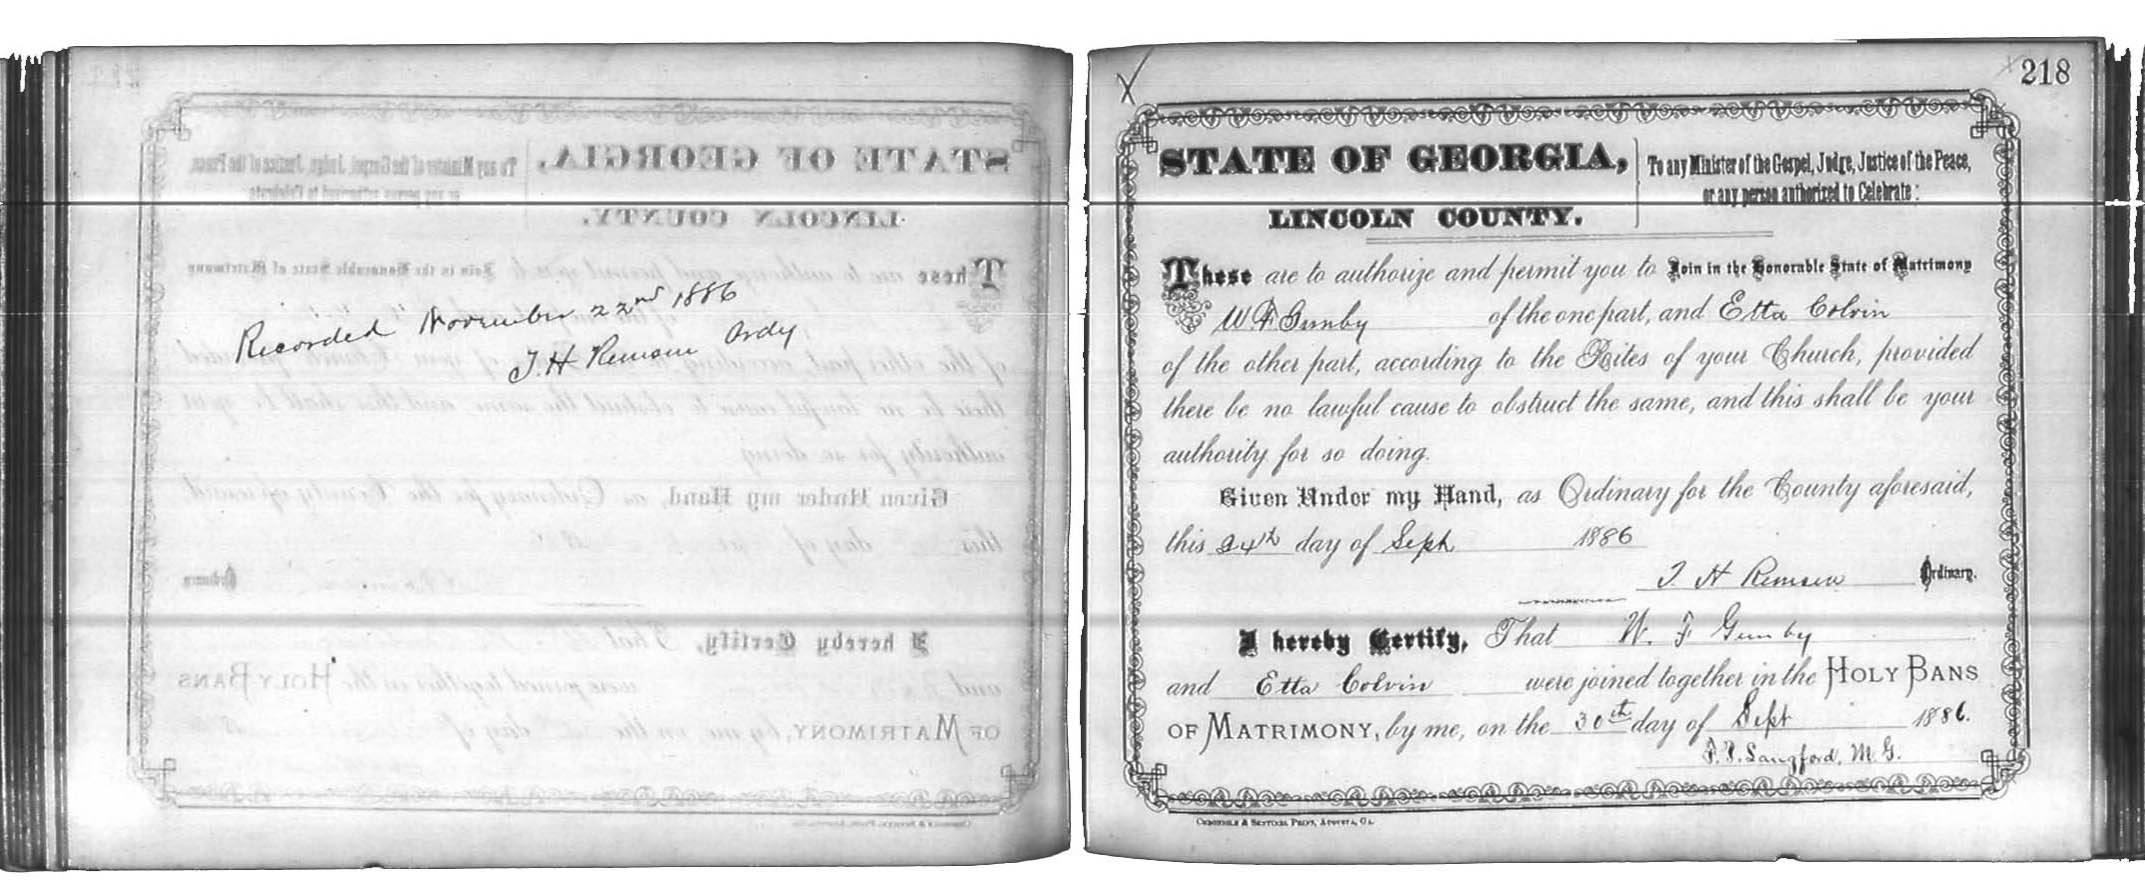 Recorded November 22nd 1886
T. H. Remsen Ordy
218
STATE OF GEORGIA,
LINCOLN COUNTY.
To any Minister of the Gospel, Judge, Justice of the Peace,
or any person authorized to Celebrate:
These are to authorize and permit you to Join in the Honorable State of Matrimony
W F Gunby of the one part, and Etta Colvin
of the other part, according to the Rites of your Church, provided
there be no lawful cause to obstruct the same, and this shall be your
authority for so doing.
Given Under my Hand, as Ordinary for the County aforesaid,
this 24th day of Sept 1886
T H Remsen Ordinary.
I hereby Certify, That W. F Gunby
and Etta Colvin were joined together in the HOLY BANS
OF MATRIMONY, by me, on the 30th day of Sept 1886.
Sangford, M. G.
PRINT, AUGUSTA, GA.